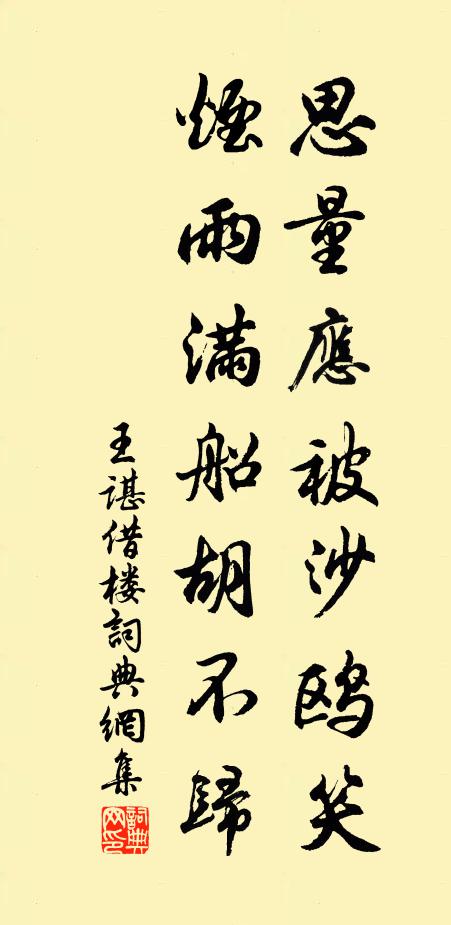 思量應被沙鸥笑
煙雨滿船胡不歸
王諶借楼詞典網集
詞典网印